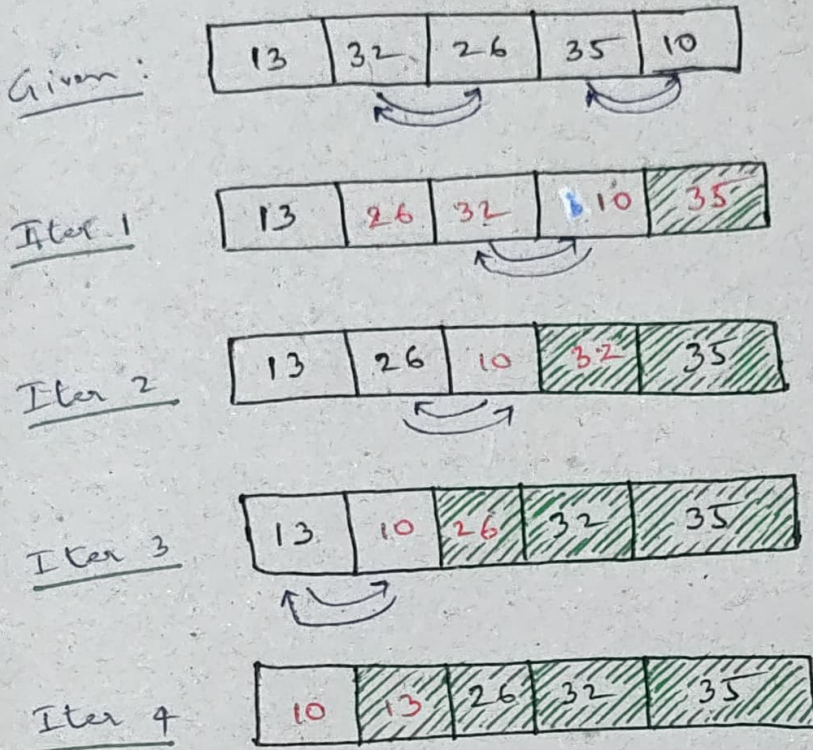 Given: 13 32 26 35 10
Iter 1 13 26 32 10 35
Iter 2 13 26 10 32 35
Iter 3 13 10 26 32 35
Iter 4 10 13 26 32 35